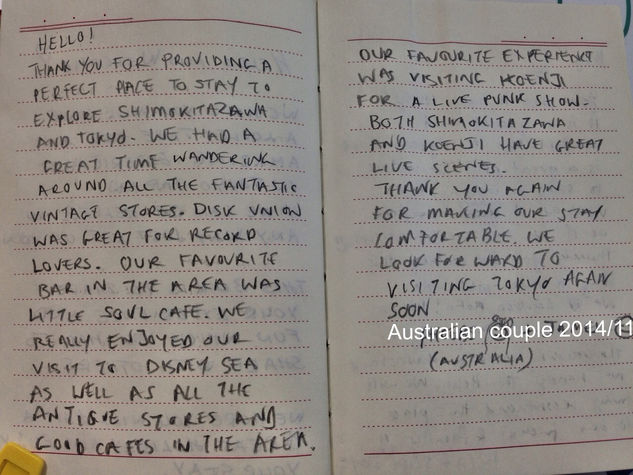 HELLO!
THANK YOU FOR PROVIDING A
PERFECT PLACE TO STAY TO
EXPLORE SHIMOKITAZAWA
AND TOKYO. WE HAD A
GREAT TIME WANDERING
AROUND ALL THE FANTASTIC
VINTAGE STORES. DISK UNION
WAS GREAT FOR RECORD
LOVERS. OUR FAVOURITE
BAR IN THE AREA WAS
LITTLE SOUL CAFE. WE
REALLY ENJOYED OUR
VISIT TO DISNEY SEA
AS WELL AS ALL THE
ANTIQUE STORES AND
GOOD CAFES IN THE AREA.
OUR FAVOURITE EXPERIENCE
WAS VISITING KOENJI
FOR A LIVE PUNK SHOW.
BOTH SHIMOKITAZAWA
AND KOENJI HAVE GREAT
LIVE SCENES.
THANK YOU AGAIN
FOR MAKING OUR STAY
COMFORTABLE. WE
LOOK FORWARD TO
VISITING TOKYO AGAIN
SOON
Australian couple 2014/11
(AUSTRALIA)